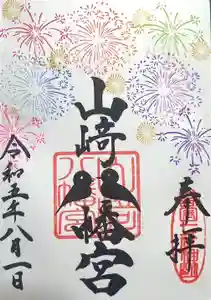 奉拝
山﨑八幡宮
令和五年八月一日